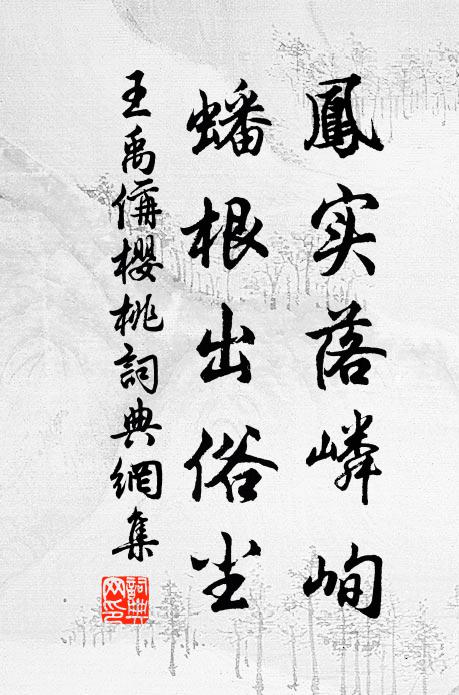 鳳实落嶙峋
蟠根出俗尘
王禹偁櫻桃詞典網集
詞典